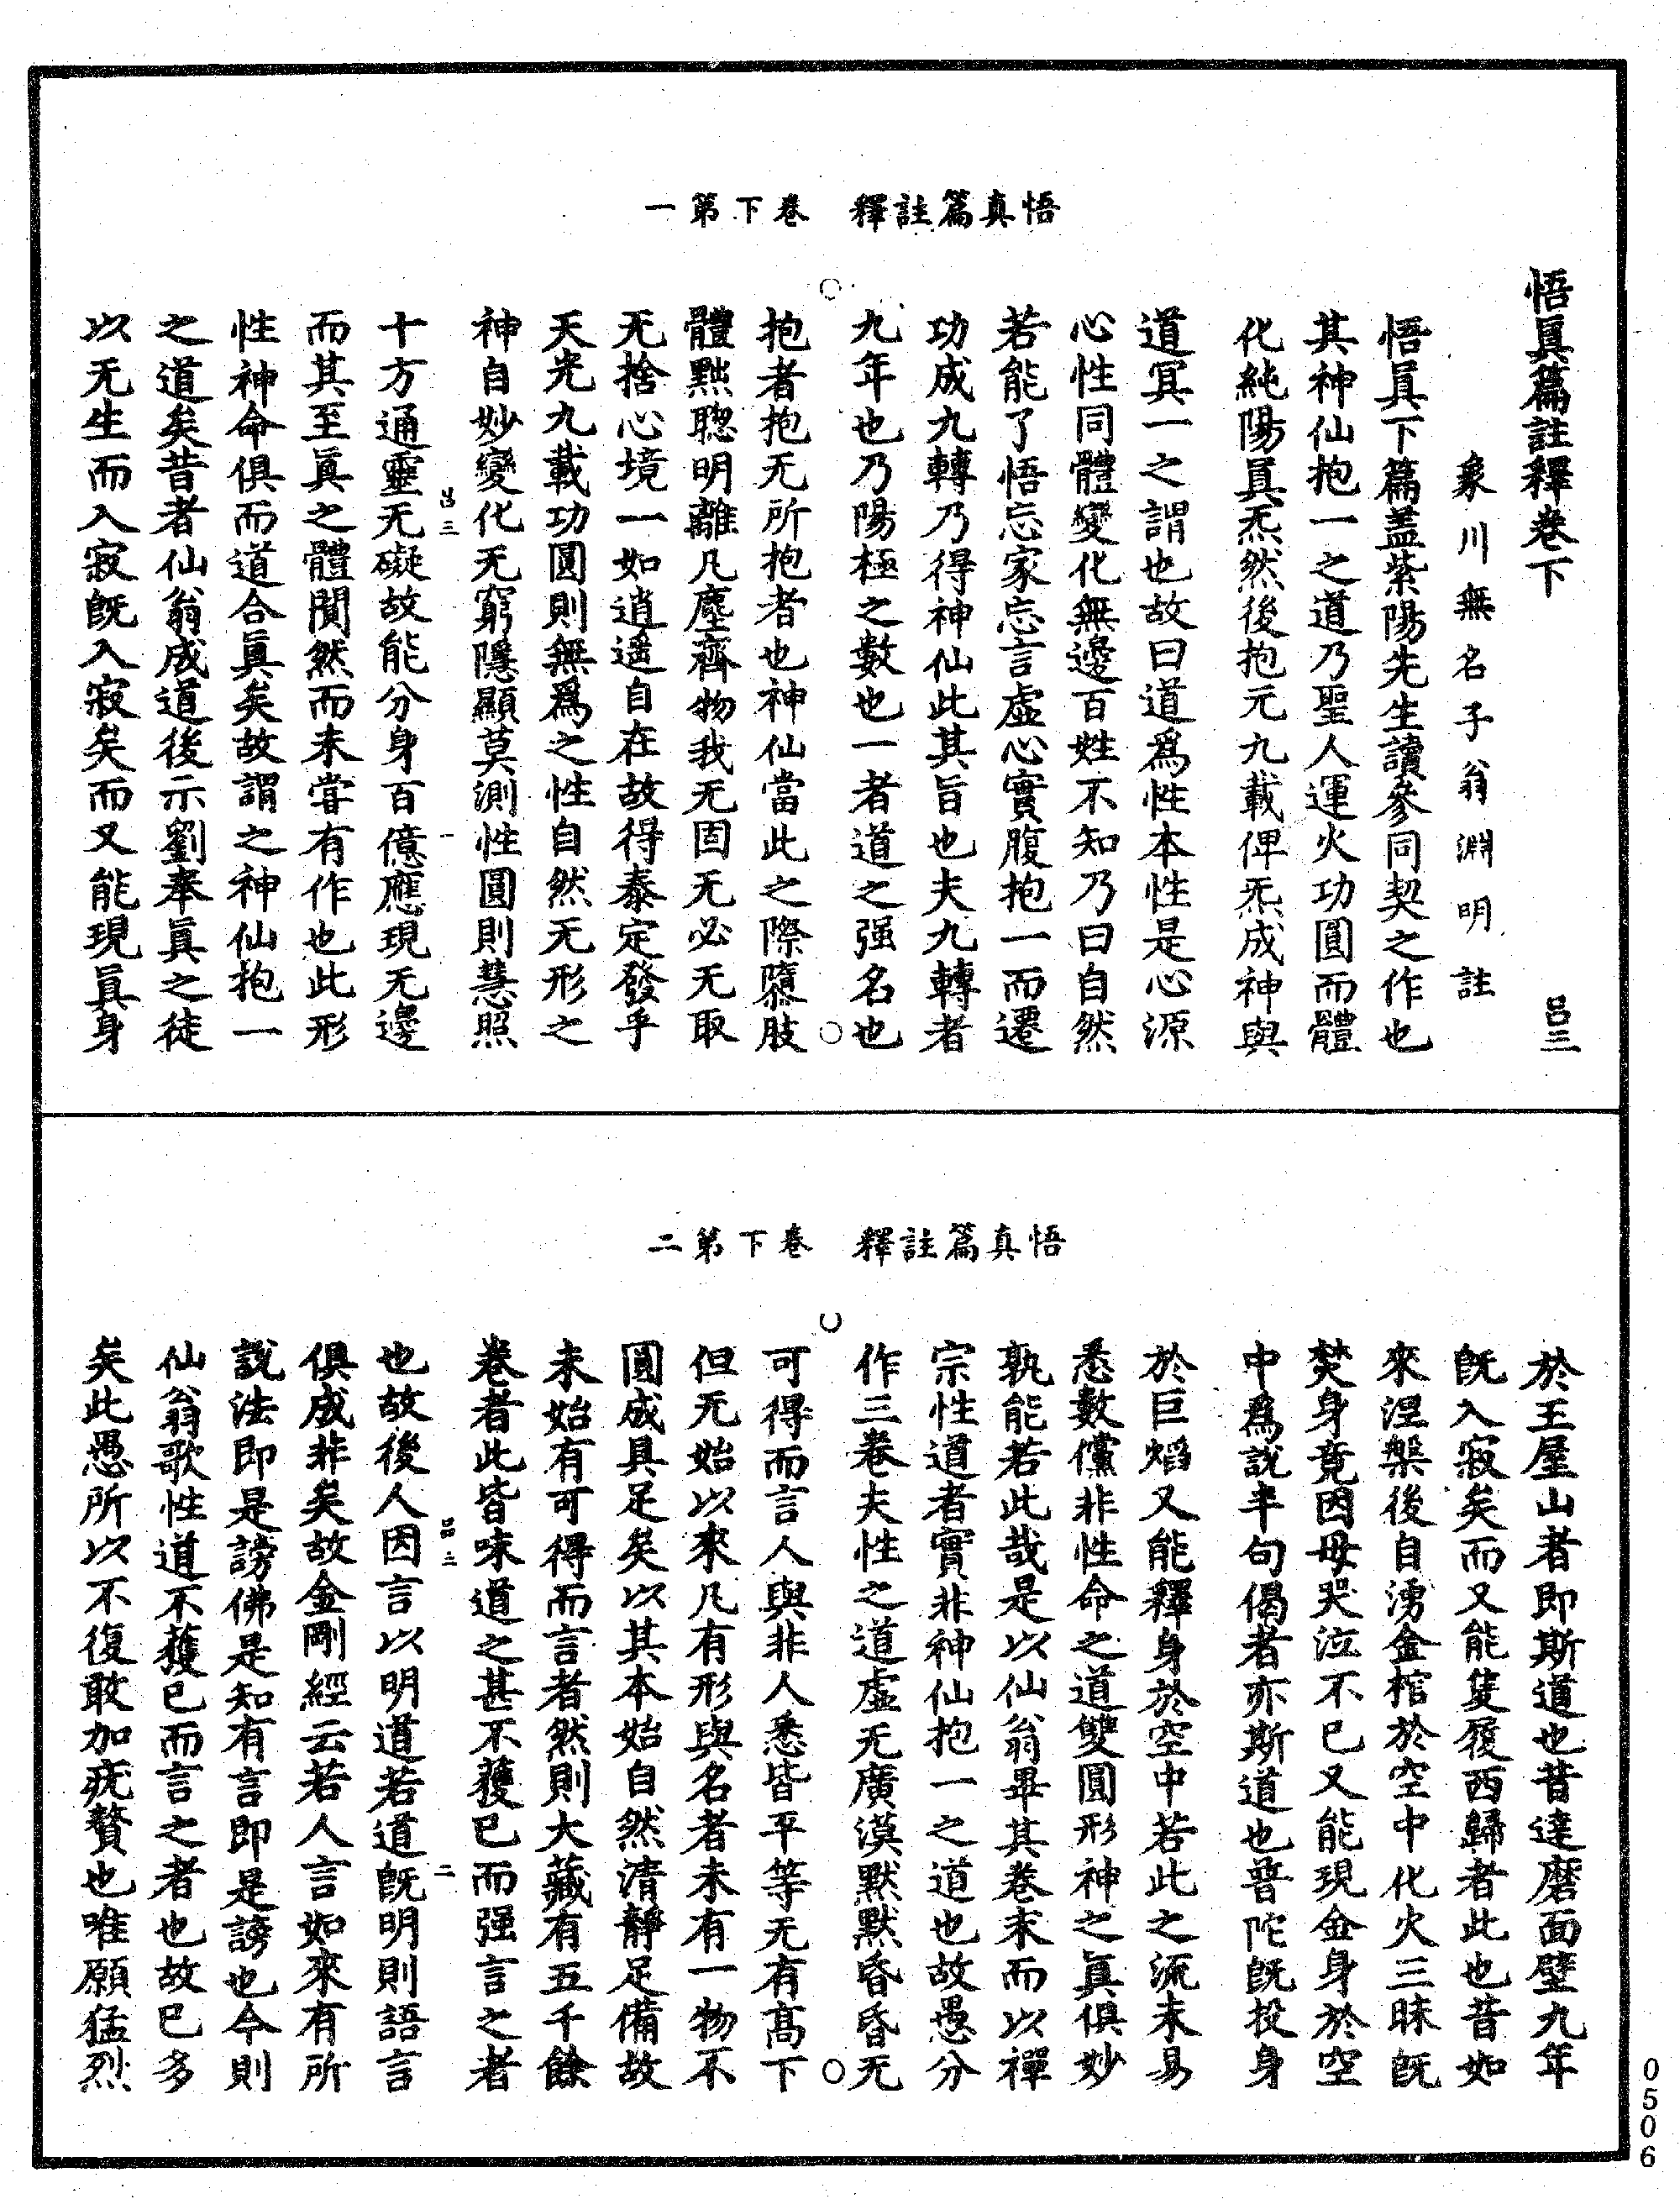 悟真篇註釋　卷下第一
悟眞篇註釋卷下　呂三
象川無名子翁淵明註
悟眞下篇盖紫陽先生讀參同契之作也
其神仙抱一之道乃聖人運火功圓而體
化純陽眞炁然後抱元九載俾炁成神與
道冥一之謂也故曰道爲性本性是心源
心性同體變化無邊百姓不知乃曰自然
若能了悟忘家忘言虛心實腹抱一而遷
功成九轉乃得神仙此其旨也夫九轉者
九年也乃陽極之數也一者道之强名也
抱者抱无所抱者也神仙當此之際隳肢
體黜聰明離凡塵齊物我无固无必无取
无捨心境一如逍遥自在故得泰定發乎
天光九載功圓則無爲之性自然无形之
神自妙變化无窮隱顯莫測性圓則慧照
呂三　一
十方通靈无礙故能分身百億應現无邊
而其至眞之體閴然而未甞有作也此形
性神命俱而道合眞矣故謂之神仙抱一
之道矣昔者仙翁成道後示劉奉眞之徒
以无生而入寂旣入寂矣而又能現眞身
悟真篇註釋　卷下第二
於王屋山者即斯道也昔達磨面壁九年
旣入寂矣而又能隻履西歸者此也昔如
來涅槃後自湧金棺於空中化火三昧旣
焚身竟因母哭泣不已又能現金身於空
中爲說半句偈者亦斯道也普陀旣投身
於巨熖又能釋身於空中若此之流未易
悉數儻非性命之道雙圓形神之眞俱妙
孰能若此哉是以仙翁畢其卷末而以禪
宗性道者實非神仙抱一之道也故愚分
作三卷夫性之道虛无廣漠默默昏昏无
可得而言人與非人悉皆平等无有髙下
但无始以來凡有形與名者未有一物不
圓成具足矣以其本始自然清靜足備故
未始有可得而言者然則大藏有五千餘
卷者此皆味道之甚不獲已而强言之者
呂三　二
也故後人因言以明道若道旣明則語言
俱成非矣故金剛經云若人言如來有所
說法即是謗佛是知有言即是謗也今則
仙翁歌性道不獲已而言之者也故已多
矣此愚所以不復敢加疣贅也唯願猛烈
0506